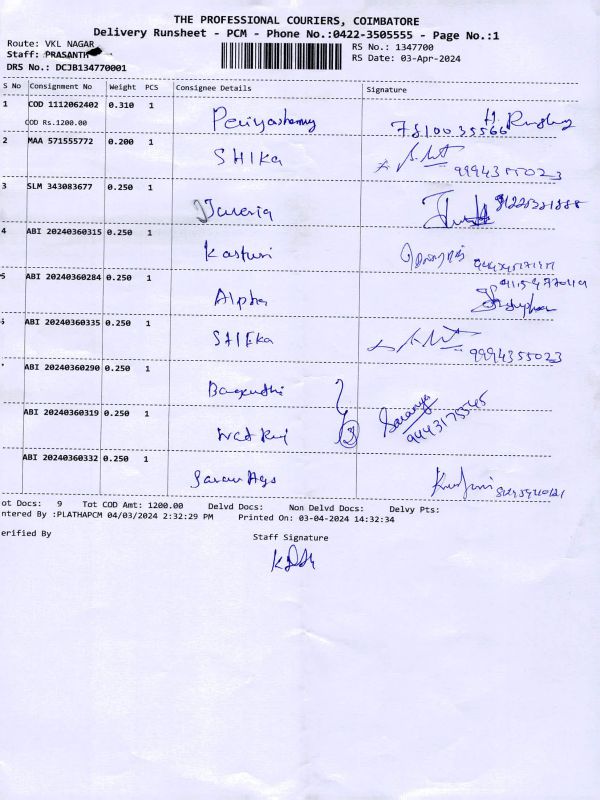 THE PROFESSIONAL COURIERS, COIMBATORE
Delivery Runsheet - PCM - Phone No.:0422-3505555 - Page No.:1
Route: VKL NAGAR
RS No.: 1347700
Staff: PRASANTH
RS Date: 03-Apr-2024
DRS No.: DCJB134770001
S No Consignment No Weight PCS Consignee Details Signature
1 COD 1112062402 0.310 1
COD Rs.1200.00
7810035566
2 MAA 571555772 0.200 1 SHIKa
9994355023
3 SLM 343083677 0.250 1
4 ABI 20240360315 0.250 1 Kasturi
5 ABI 20240360284 0.250 1 Alpha
ABI 20240360335 0.250 1
9994355023
ABI 20240360290 0.250 1
ABI 20240360319 0.250 1
Saranya
9443175545
ABI 20240360332 0.250 1
ot Docs: 9 Tot COD Amt: 1200.00 Delvd Docs: Non Delvd Docs: Delvy Pts:
ntered By :PLATHAPCM 04/03/2024 2:32:29 PM Printed On: 03-04-2024 14:32:34
erified By
Staff Signature